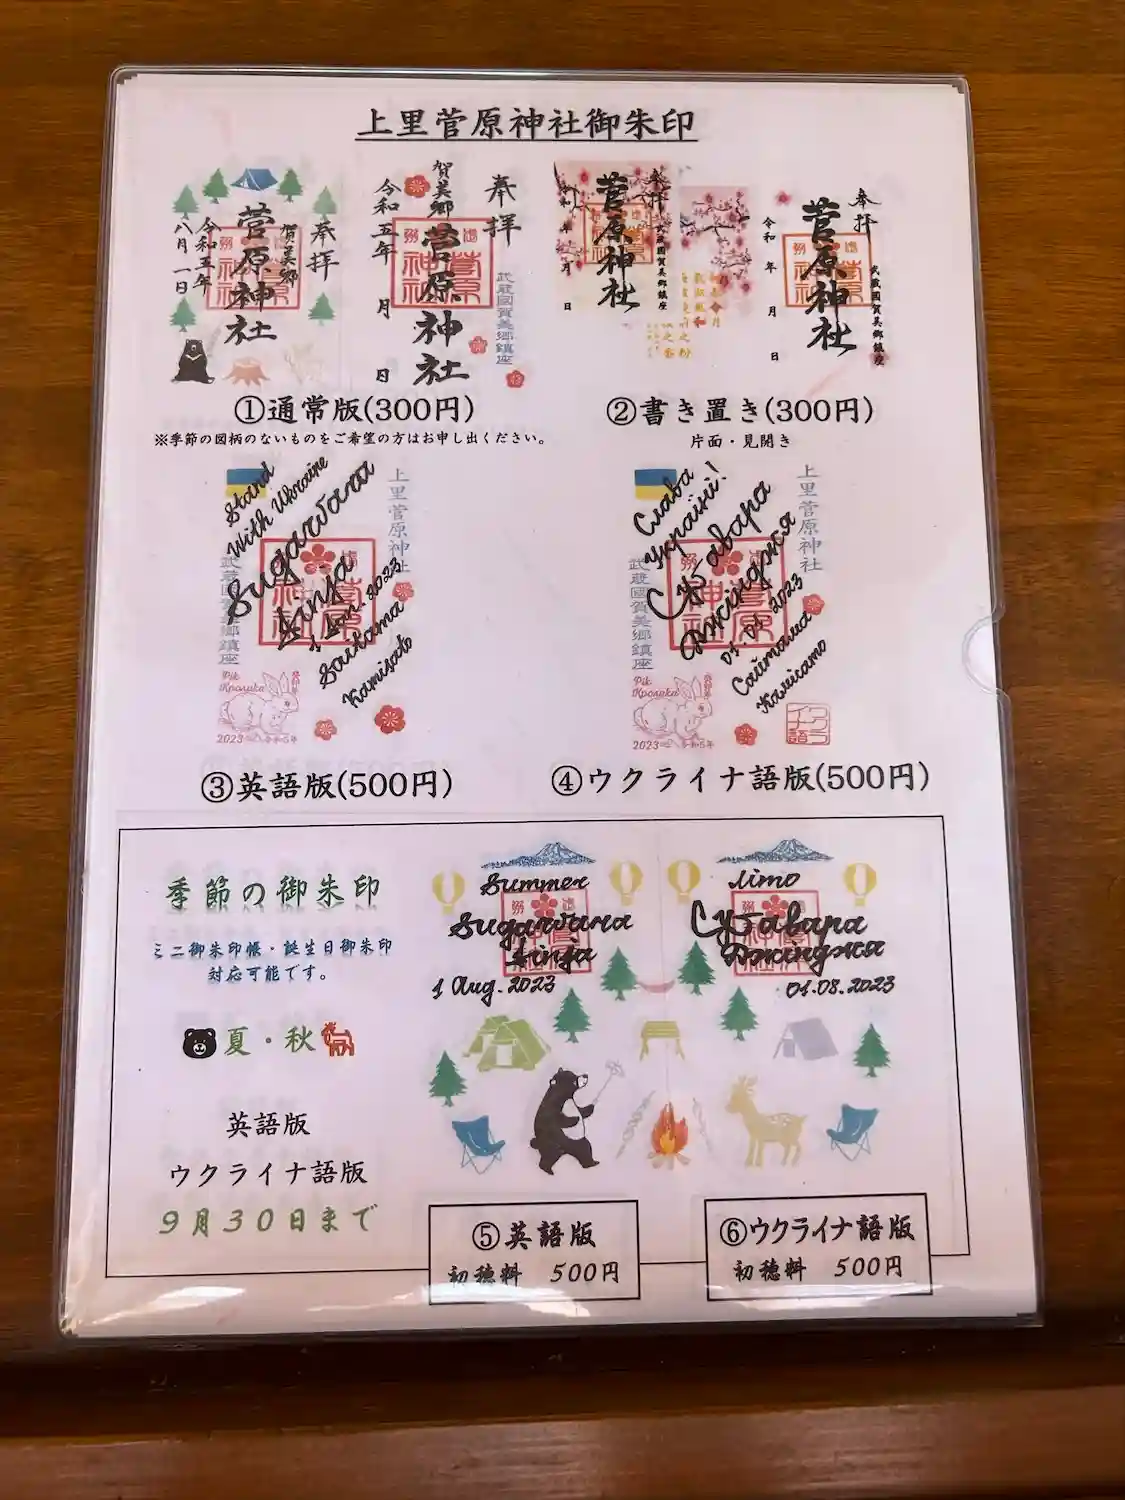 上里菅原神社御朱印
奉拝
賀美郷
菅原神社
令和五年
八月一日
奉拝
賀美郷
菅原神社
令和五年 月 日
武蔵國賀美郷鎮座
奉拝
菅原神社
武蔵國賀美郷鎮座
奉拝
菅原神社
令和 年 月 日
武蔵國賀美郷鎮座
①通常版(300円)
②書き置き(300円)
※季節の図柄のないものをご希望の方はお申し出ください。
片面・見開き
Stand
With Ukraine
Sugawara
Jinja
1 Jan. 2023
Saitama
Kamisato
上里菅原神社
武蔵國賀美郷鎮座
Рік
Кролика
2023 令和5年
Слава
Україні!
Суґавара
Джінджя
01.01.2023
Сайтама
Камісато
上里菅原神社
武蔵國賀美郷鎮座
Рік
Кролика
2023 令和5年
ウクライナ語
③英語版(500円)
④ウクライナ語版(500円)
季節の御朱印
ミニ御朱印帳・誕生日御朱印
対応可能です。
夏・秋
英語版
ウクライナ語版
9月30日まで
Summer
Sugawara
Jinja
1 Aug. 2023
літо
Суґавара
Джінджя
01.08.2023
⑤英語版
初穂料 500円
⑥ウクライナ語版
初穂料 500円